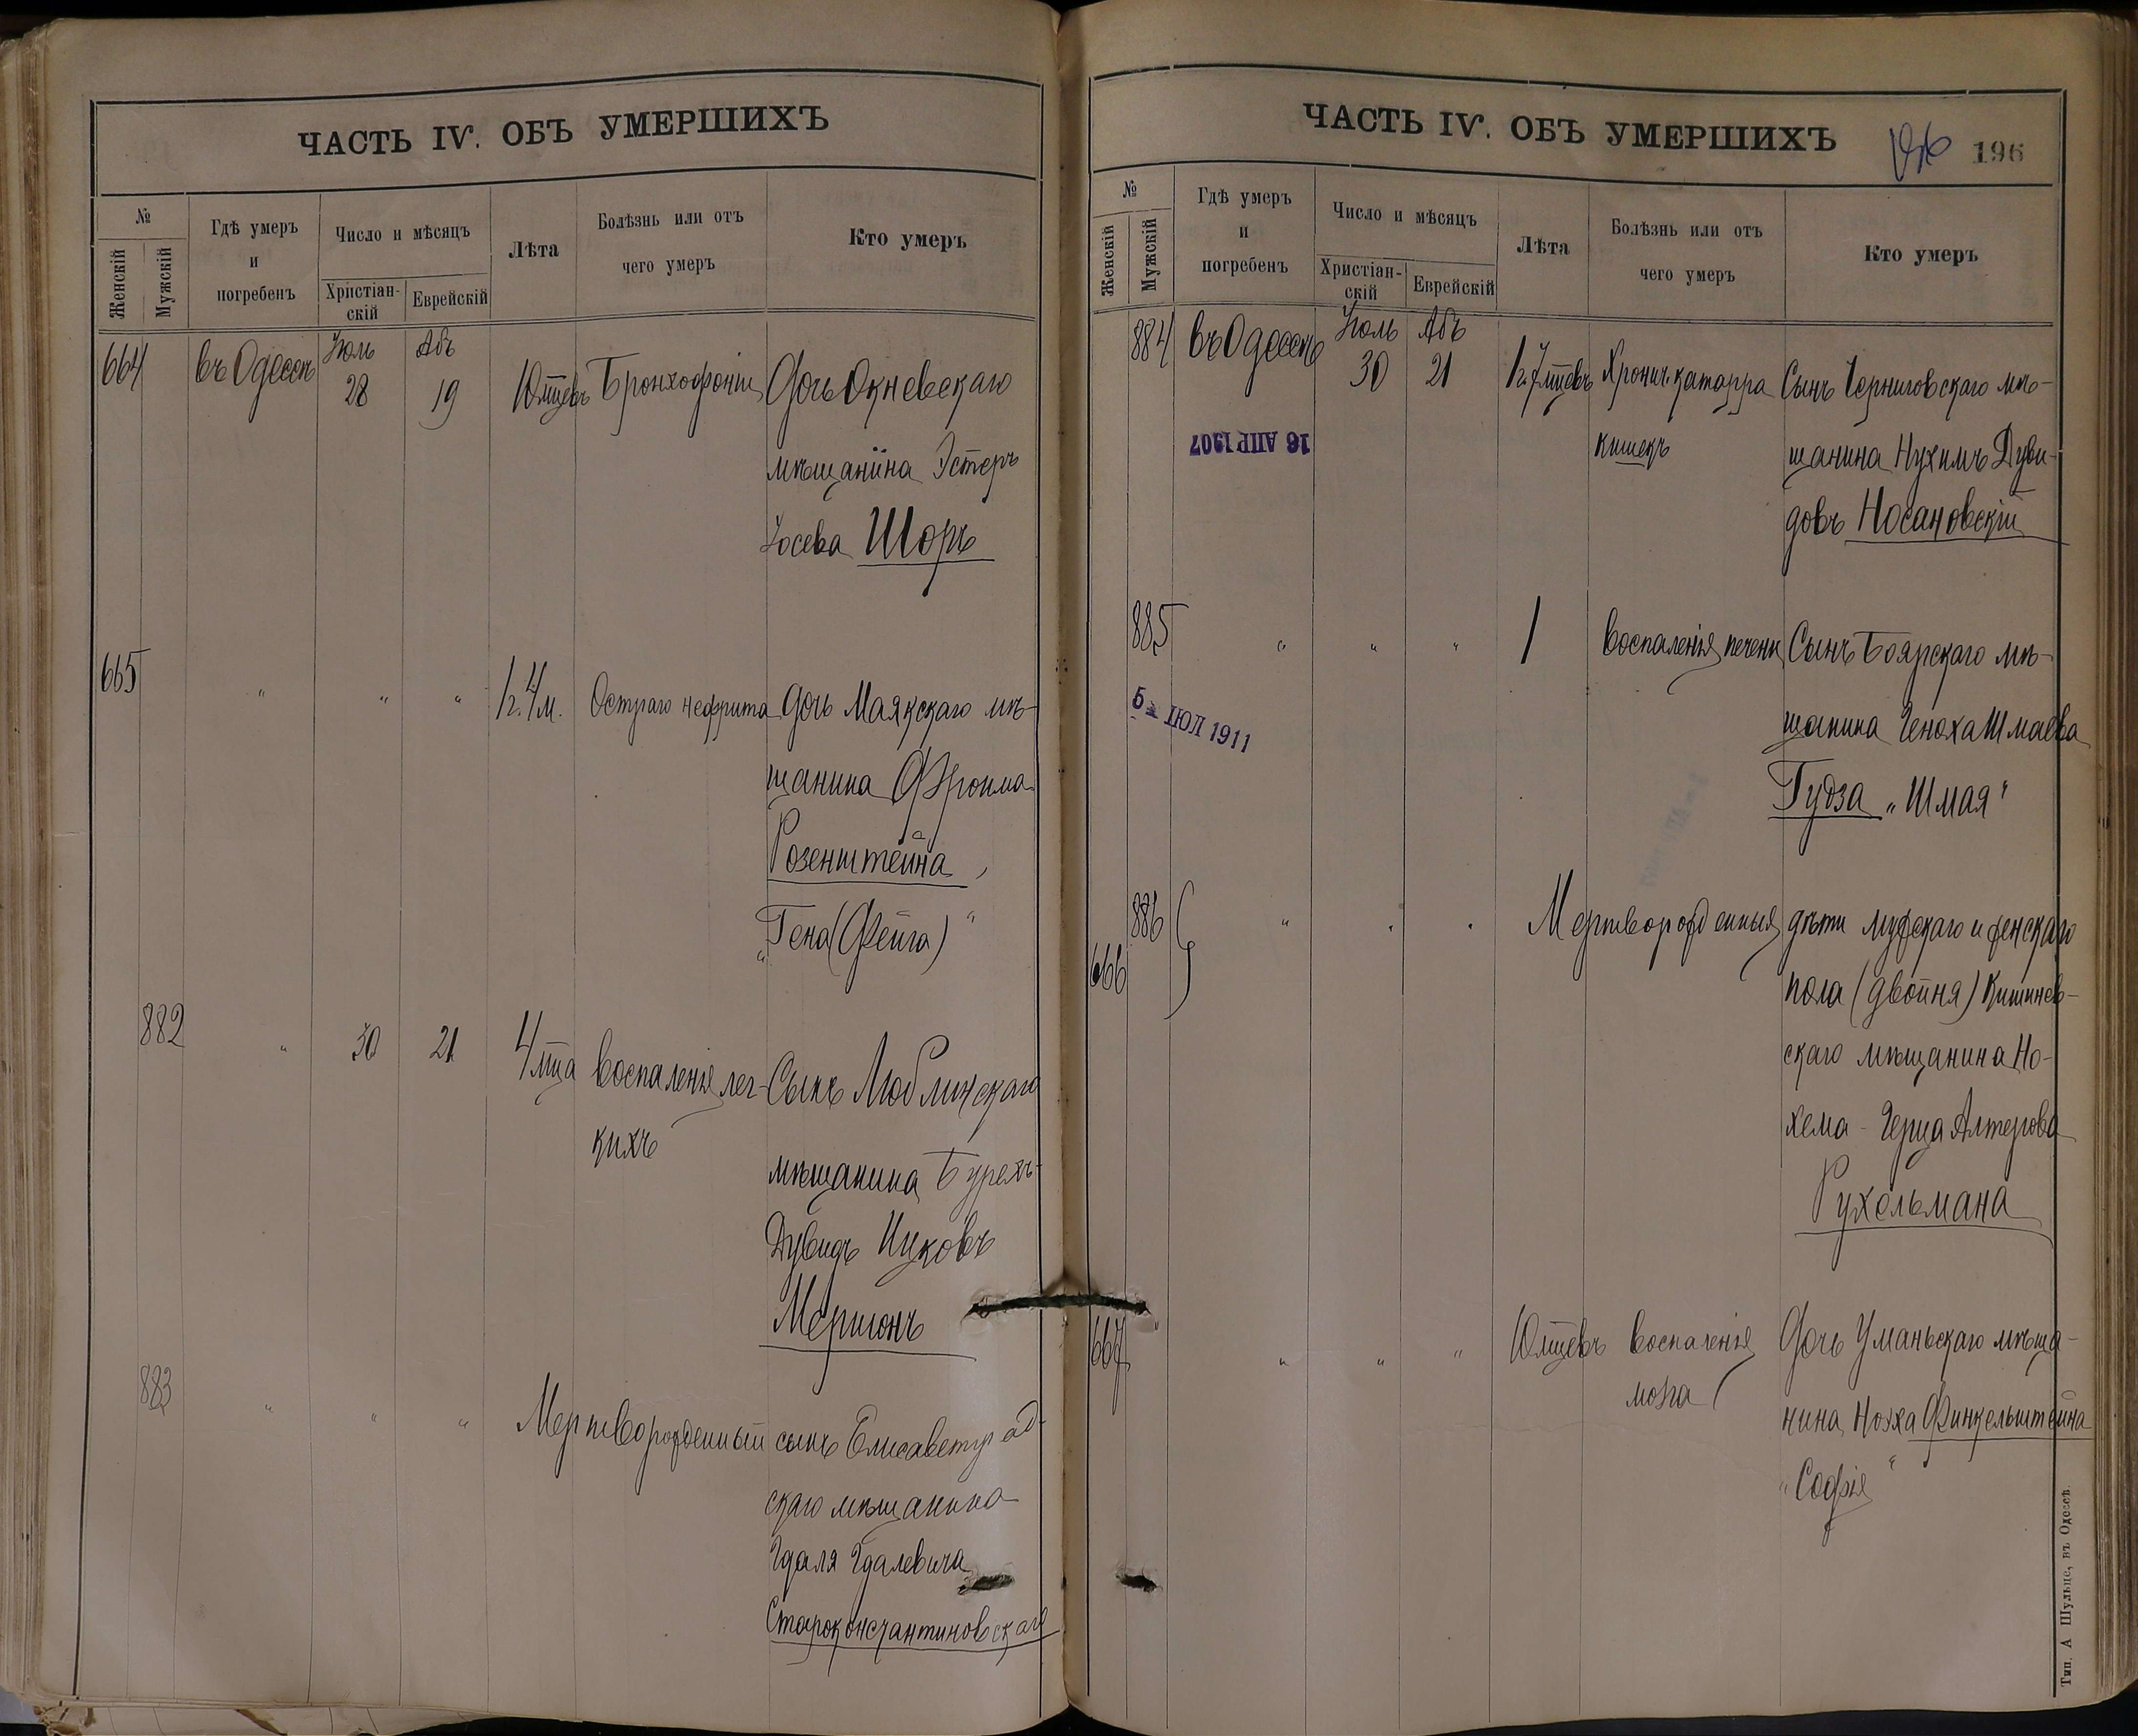 ЧАСТЬ IV. ОБЪ УМЕРШИХЪ
№
Женскій
Мужскій
Гдѣ умеръ
и
погребенъ
Число и мѣсяцъ
Христіан-
скій
Еврейскій
Лѣта
Болѣзнь или отъ
чего умеръ
Кто умеръ
664 въ Одессѣ Іюль 28 Абъ 19 10 мцевъ Бронхофоніи Дочь Окневскаго
мѣщанина Эстеръ
Іосева Шоръ
665 " " " 1 г. 4 м. Остраго нефрита Дочь Маякскаго мѣ-
щанина Фроима
Розенштейна,
"Гена (Фейга)"
882 " 30 21 4 мца Воспаленія лег- Сынъ Люблинскаго
кихъ мѣщанина Бурехъ-
Дувидъ Ицковъ
Мершонъ
883 " " " Мертворожденный сынъ Елисаветград-
скаго мѣщанина
Гдаля Гдалевича
Староконстантиновскаго
ЧАСТЬ IV. ОБЪ УМЕРШИХЪ
196
196
№
Женскій
Мужскій
Гдѣ умеръ
и
погребенъ
Число и мѣсяцъ
Христіан-
скій
Еврейскій
Лѣта
Болѣзнь или отъ
чего умеръ
Кто умеръ
884 въ Одессѣ Іюль 30 Абъ 21 1 г. 7 мцевъ Хронич. катарра Сынъ Черниговскаго мѣ-
кишекъ щанина Нухимъ Дуви-
16 АПР 1907
довъ Носановскій
885 " " " 1 Воспаленія печени Сынъ Боярскаго мѣ-
5 ІЮЛ 1911
щанина Геноха Шмаева
Гудза "Шмая"
886 " " " Мертворожденныя дѣти мужскаго и женскаго
666 пола (двойня) Кишинев-
скаго мѣщанина Но-
хема-Герца Алтерова
Рухельмана
667 " " " 10 мцевъ Воспаленія Дочь Уманьскаго мѣща-
мозга нина Ноэха Финкельштейна
"Софія"
Тип. А Шульце, въ Одессѣ.